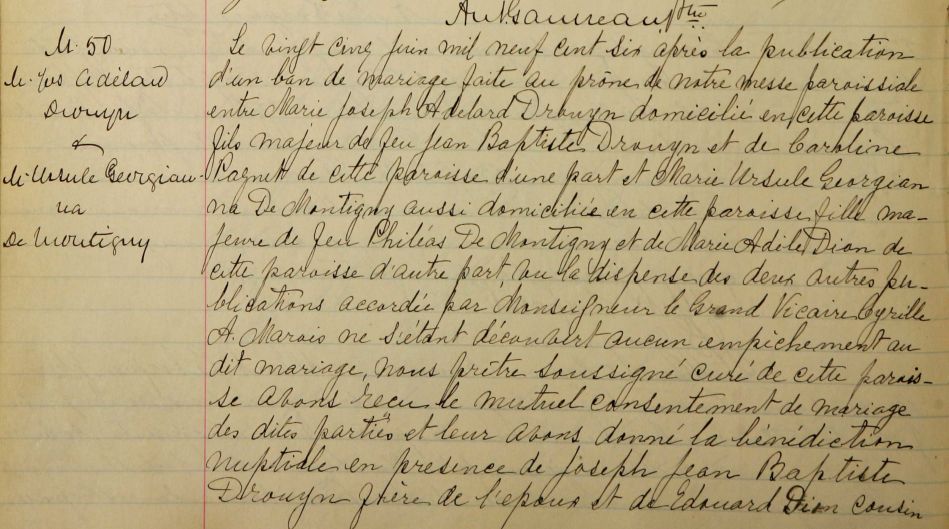 Ant. Gauvreau Ptre
M. 50
M. Jos Adélard
Drouyn
&
M. Ursule Georgian-
na
De Montigny
Le vingt cinq juin mil neuf cent six après la publication
d'un ban de mariage faite au prône de notre messe paroissiale
entre Marie Joseph Adelard Drouyn domicilié en cette paroisse
fils majeur de feu Jean Baptiste Drouyn et de Caroline
Pagnett de cette paroisse d'une part et Marie Ursule Georgian
na De Montigny aussi domiciliée en cette paroisse, fille ma-
jeure de feu Philéas De Montigny et de Marie Adèle Dion de
cette paroisse d'autre part, vu la dispense des deux autres pu-
blications accordée par Monseigneur le Grand Vicaire Cyrille
A. Marois ne s'étant découvert aucun empêchement au
dit mariage, nous prêtre soussigné curé de cette parois-
se avons reçu le mutuel consentement de mariage
des dites parties et leur avons donné la bénédiction
nuptiale en présence de Joseph Jean Baptiste
Drouyn frère de l'epoux et de Edouard Dion cousin